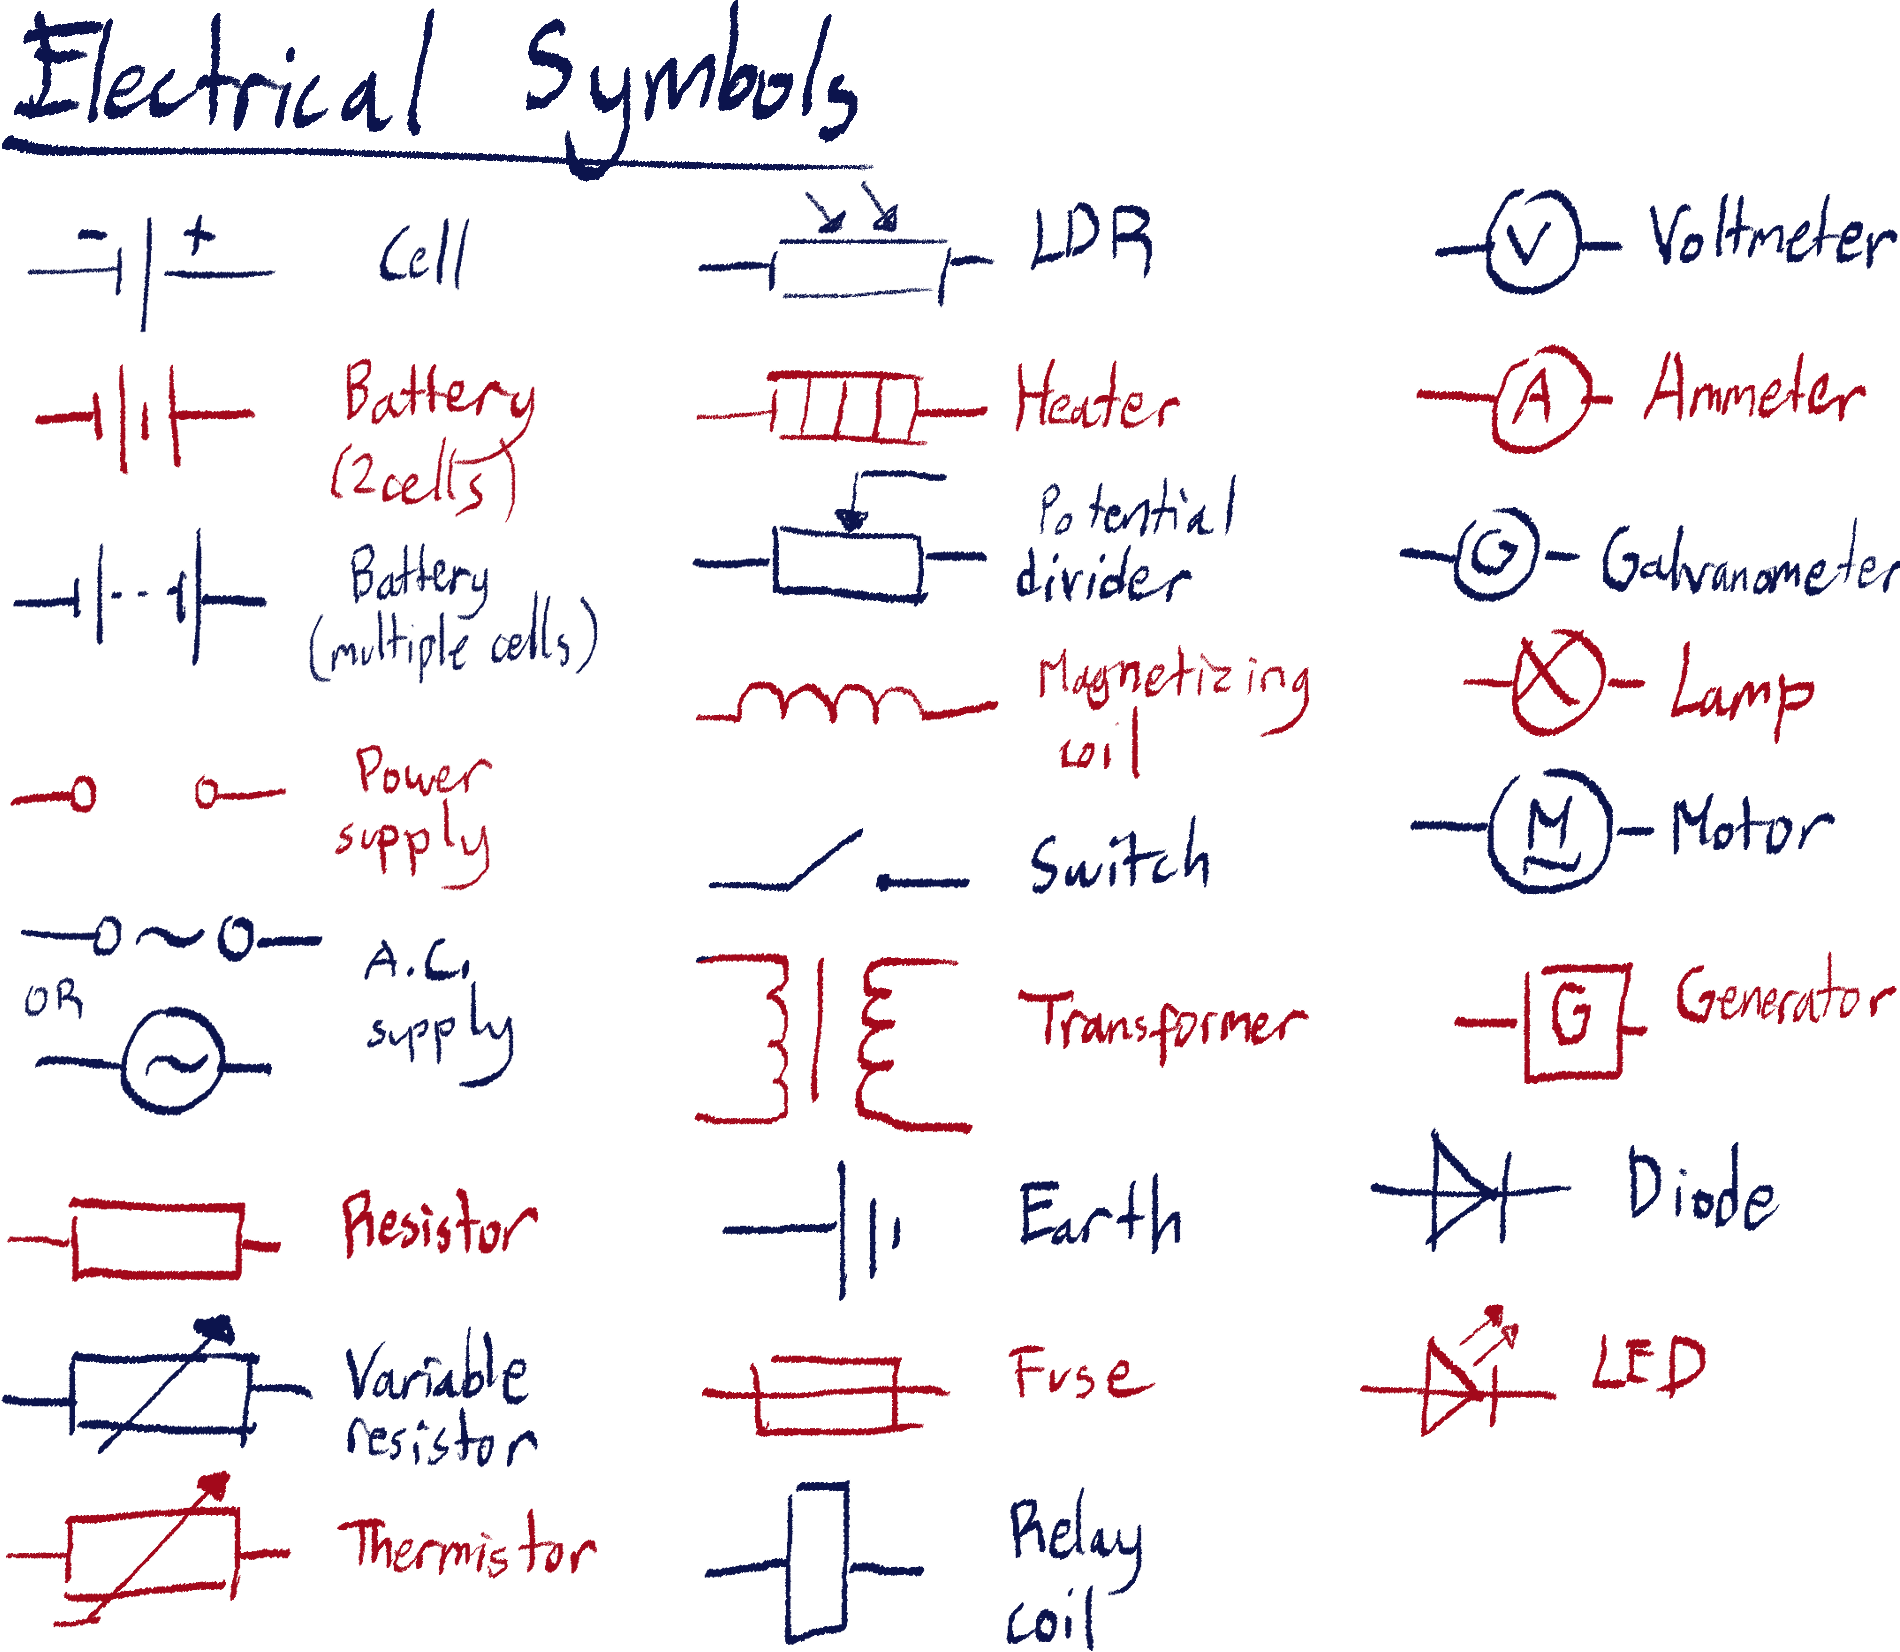 Electrical Symbols
- +
Cell
Battery
(2cells)
Battery
(multiple cells)
Power
supply
OR
A.C.
supply
Resistor
Variable
resistor
Thermistor
LDR
Heater
Potential
divider
Magnetizing
coil
Switch
Transformer
Earth
Fuse
Relay
coil
V Voltmeter
A Ammeter
G Galvanometer
Lamp
M Motor
G Generator
Diode
LED